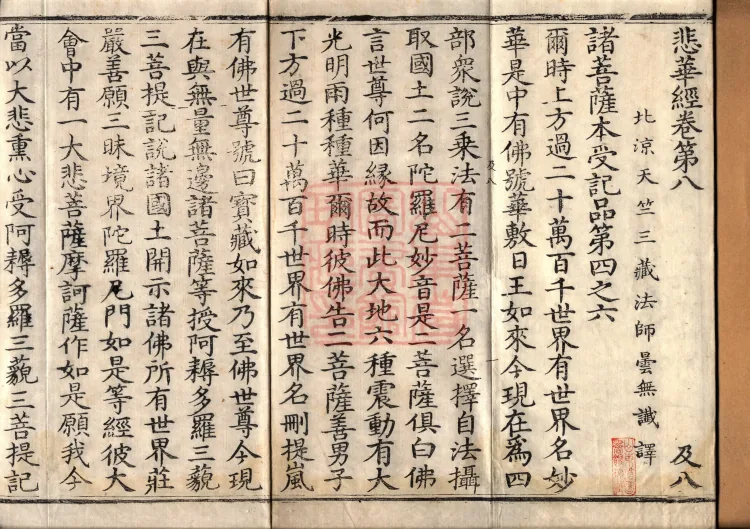 悲華經卷第八 及八
北涼天竺三藏法師曇無讖譯
諸菩薩本受記品第四之六
爾時上方過二十萬百千世界有世界名妙
華是中有佛號華敷日王如來今現在爲四
及八
部衆說三乘法有二菩薩一名選擇自法攝
取國土二名陀羅尼妙音是二菩薩俱白佛
言世尊何因緣故而此大地六種震動有大
光明雨種種華爾時彼佛告二菩薩善男子
下方過二十萬百千世界有世界名刪提嵐
有佛世尊號曰寶藏如來乃至佛世尊今現
在與無量無邊諸菩薩等授阿耨多羅三藐
三菩提記說諸國土開示諸佛所有世界莊
嚴善願三昧境界陀羅尼門如是等經彼大
會中有一大悲菩薩摩訶薩作如是願我今
當以大悲熏心受阿耨多羅三藐三菩提記